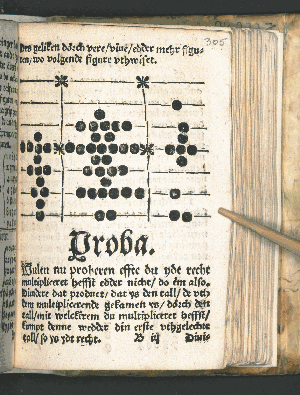 305
Des geliken dörch vere/viue/edder mehr figu-
ren/wo volgende figure vthwiset.
Proba.
Wulen nu proberen effte du yde recht
multipliceret hefft edder nicht/ do em also.
Diuidere dat product/ dat ys den tall/ de vth
dem multiplicerende gekamen ys/ dörch den
tall/mit welckerem du multipliceret hefft/
kumpt denne wedder din erste vthgelechte
tall/ so ys ydt recht. D iij Diuis